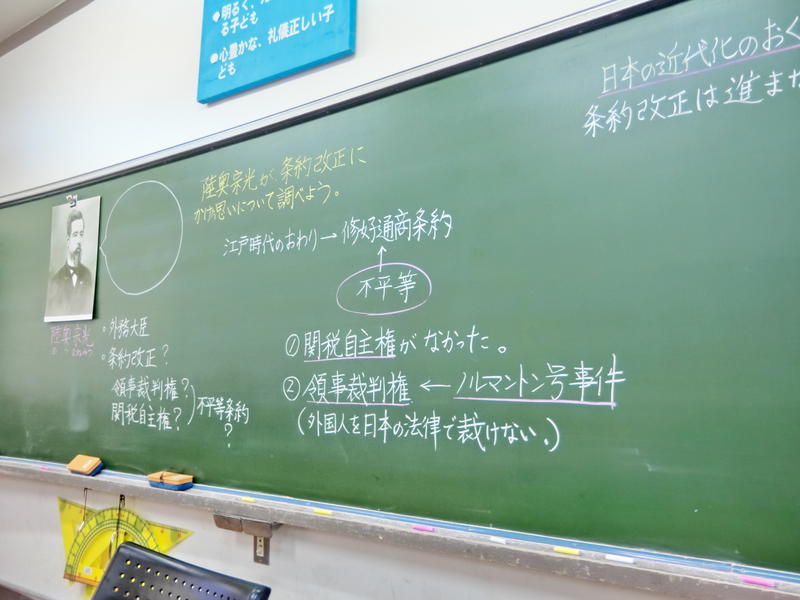 る子ども
心豊かな、礼儀正しい子
ども
日本の近代化のおく
条約改正は進ま
陸奥宗光が、条約改正に
かけた思いについて調べよう。
江戸時代のおわり→修好通商条約
↑
不平等
①関税自主権がなかった。
②領事裁判権←ノルマントン号事件
(外国人を日本の法律で裁けない。)
陸奥宗光
・外務大臣
・条約改正?
領事裁判権?
関税自主権?
不平等条約
?